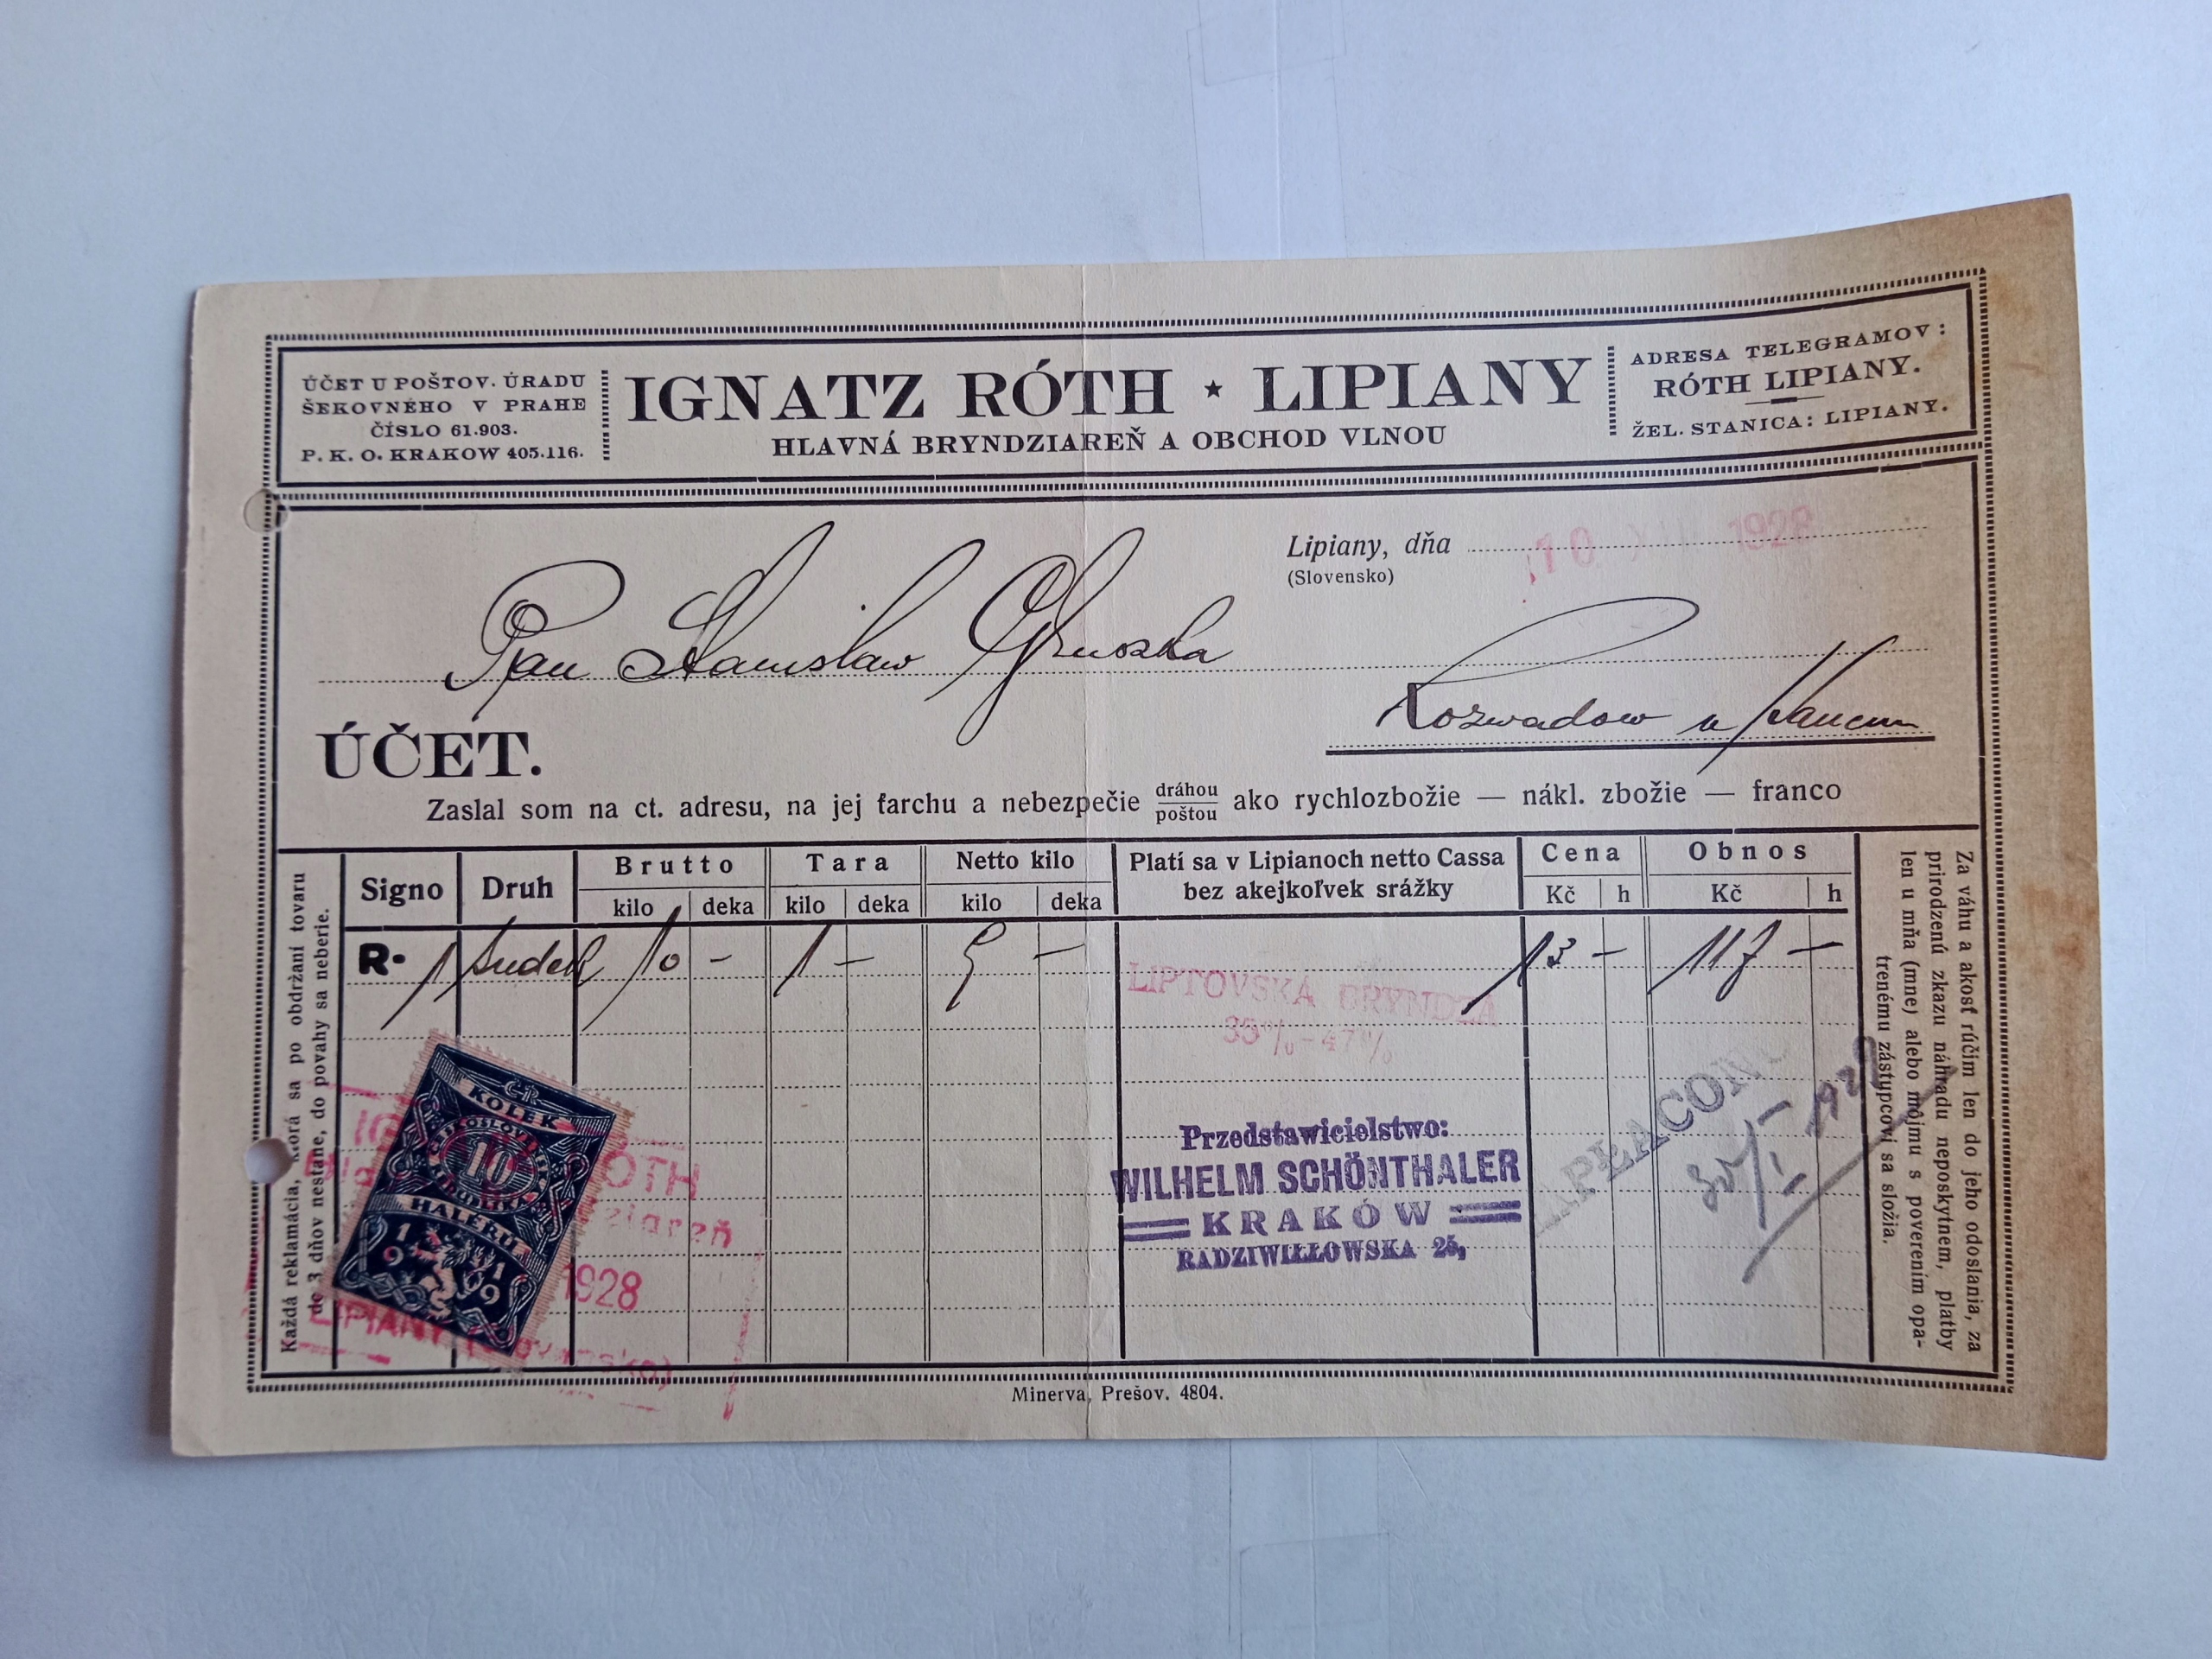 ÚČET U POŠTOV. ÚRADU
ŠEKOVNÉHO V PRAHE
ČÍSLO 61.903.
P. K. O. KRAKOW 405.116.
IGNATZ RÓTH ★ LIPIANY
HLAVNÁ BRYNDZIAREŇ A OBCHOD VLNOU
ADRESA TELEGRAMOV:
RÓTH LIPIANY.
ŽEL. STANICA: LIPIANY.
Lipiany, dňa 10 XII 1928
(Slovensko)
Pan Stanisław
Rozwadow n/Sanem
ÚČET.
Zaslal som na ct. adresu, na jej ťarchu a nebezpečie dráhou poštou ako rychlozbožie — nákl. zbožie — franco
Signo Druh Brutto Tara Netto kilo Platí sa v Lipianoch netto Cassa Cena Obnos
bez akejkoľvek srážky
kilo deka kilo deka kilo deka Kč h Kč h
R· 1 sudek 10 – 1 – 9 – 13 – 117 –
LIPTOVSKÁ BRYNDZA
35% – 47%
Przedstawicielstwo:
WILHELM SCHÖNTHALER
KRAKÓW
RADZIWIŁŁOWSKA 25,
ZAPŁACONO
KOLEK
10
HALÉŘŮ
1919
RÓTH
1928
LIPIANY (Slovensko)
Každá reklamácia, ktorá sa po obdržaní tovaru
do 3 dňov nestane, do povahy sa neberie.
Za váhu a akosť rúčim len do jeho odoslania, za
prirodzenú zkazu náhradu neposkytnem, platby
len u mňa (mne) alebo môjmu s poverením opa-
trenému zástupcovi sa složia.
Minerva, Prešov. 4804.